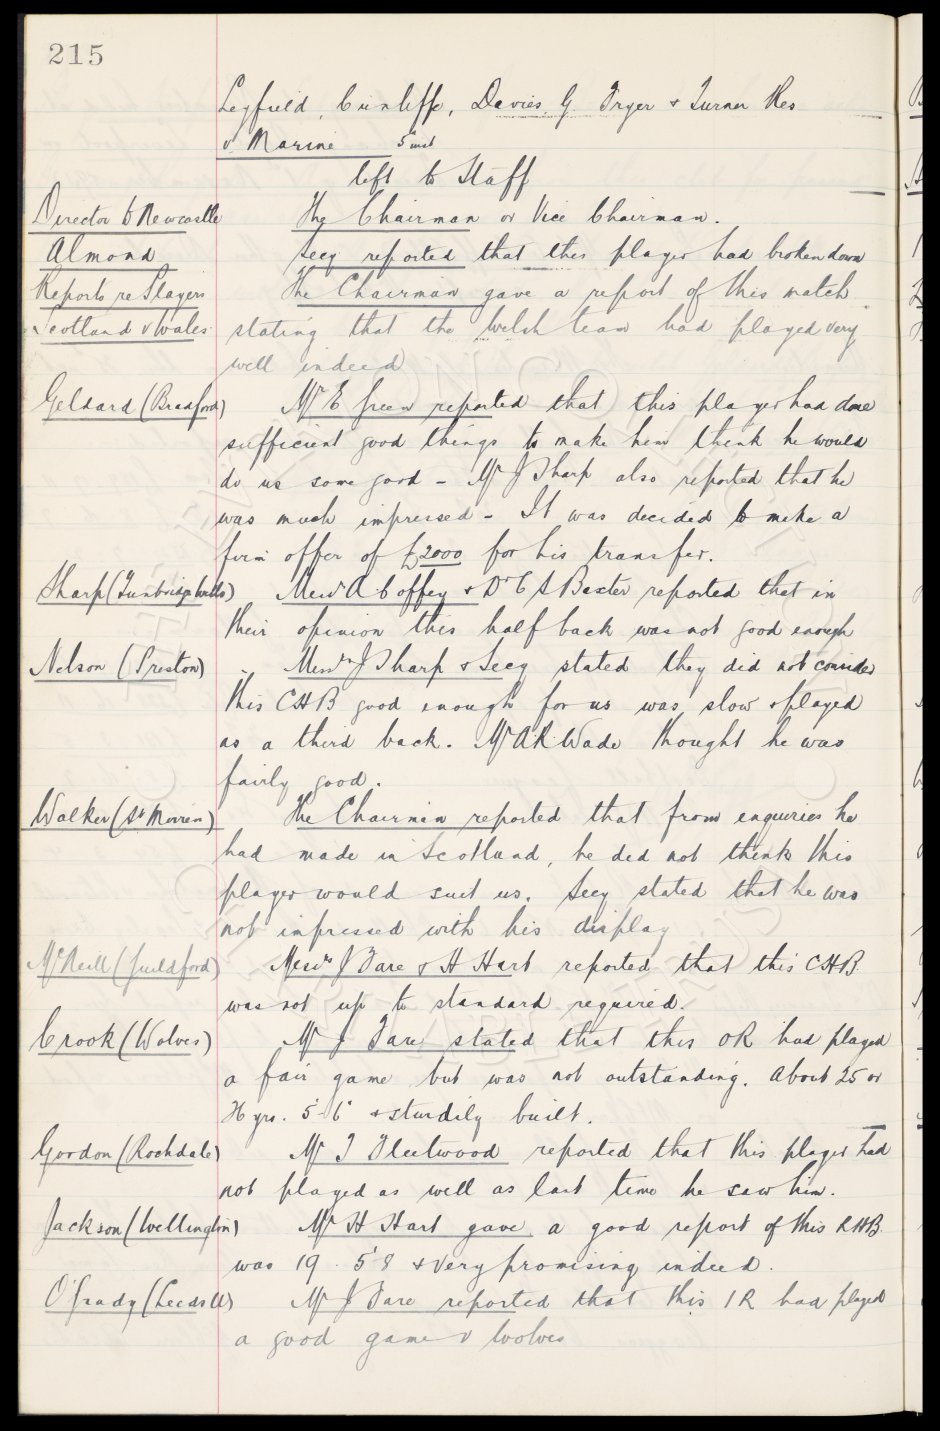 215
Legfield, Cunliffe, Davies G. Fryer & Turner Res
v Marine 5 inst
left to Staff
Director to Newcastle The Chairman or Vice Chairman.
Almond Secy reported that this player had broken down
Reports re Players The Chairman gave a report of this match
Scotland v Wales stating that the Welsh team had played very
well indeed
Geldard (Bradford) Mr E Green reported that this player had done
sufficient good things to make him think he would
do us some good - Mr J Sharp also reported that he
was much impressed - It was decided to make a
firm offer of £2000 for his transfer.
Sharp (Tunbridge Wells) Messrs A Coffey & Dr C S Baxter reported that in
their opinion this half back was not good enough
Nelson (Preston) - Messrs J Sharp & Secy stated they did not consider
this CHB good enough for us was slow & played
as a third back. Mr A.R. Wade thought he was
fairly good.
Walker (St Mirren) The Chairman reported that from enquiries he
had made in Scotland, he did not think this
player would suit us. Secy stated that he was
not impressed with his display
McNeill (Guildford) Messrs J Fare & H Hart reported that this CHB
was not up to standard required.
Crook (Wolves) Mr J Fare stated that this OR had played
a fair game but was not outstanding. About 25 or
26 yrs. 5'-6" & sturdily built.
Gordon (Rochdale) Mr T Fleetwood reported that this player had
not played as well as last time he saw him.
Jackson (Wellington) Mr H Hart gave a good report of this RHB
was 19 5'8 & very promising indeed.
O'Grady (Leeds U) Mr J Fare reported that this IR had played
a good game v Wolves